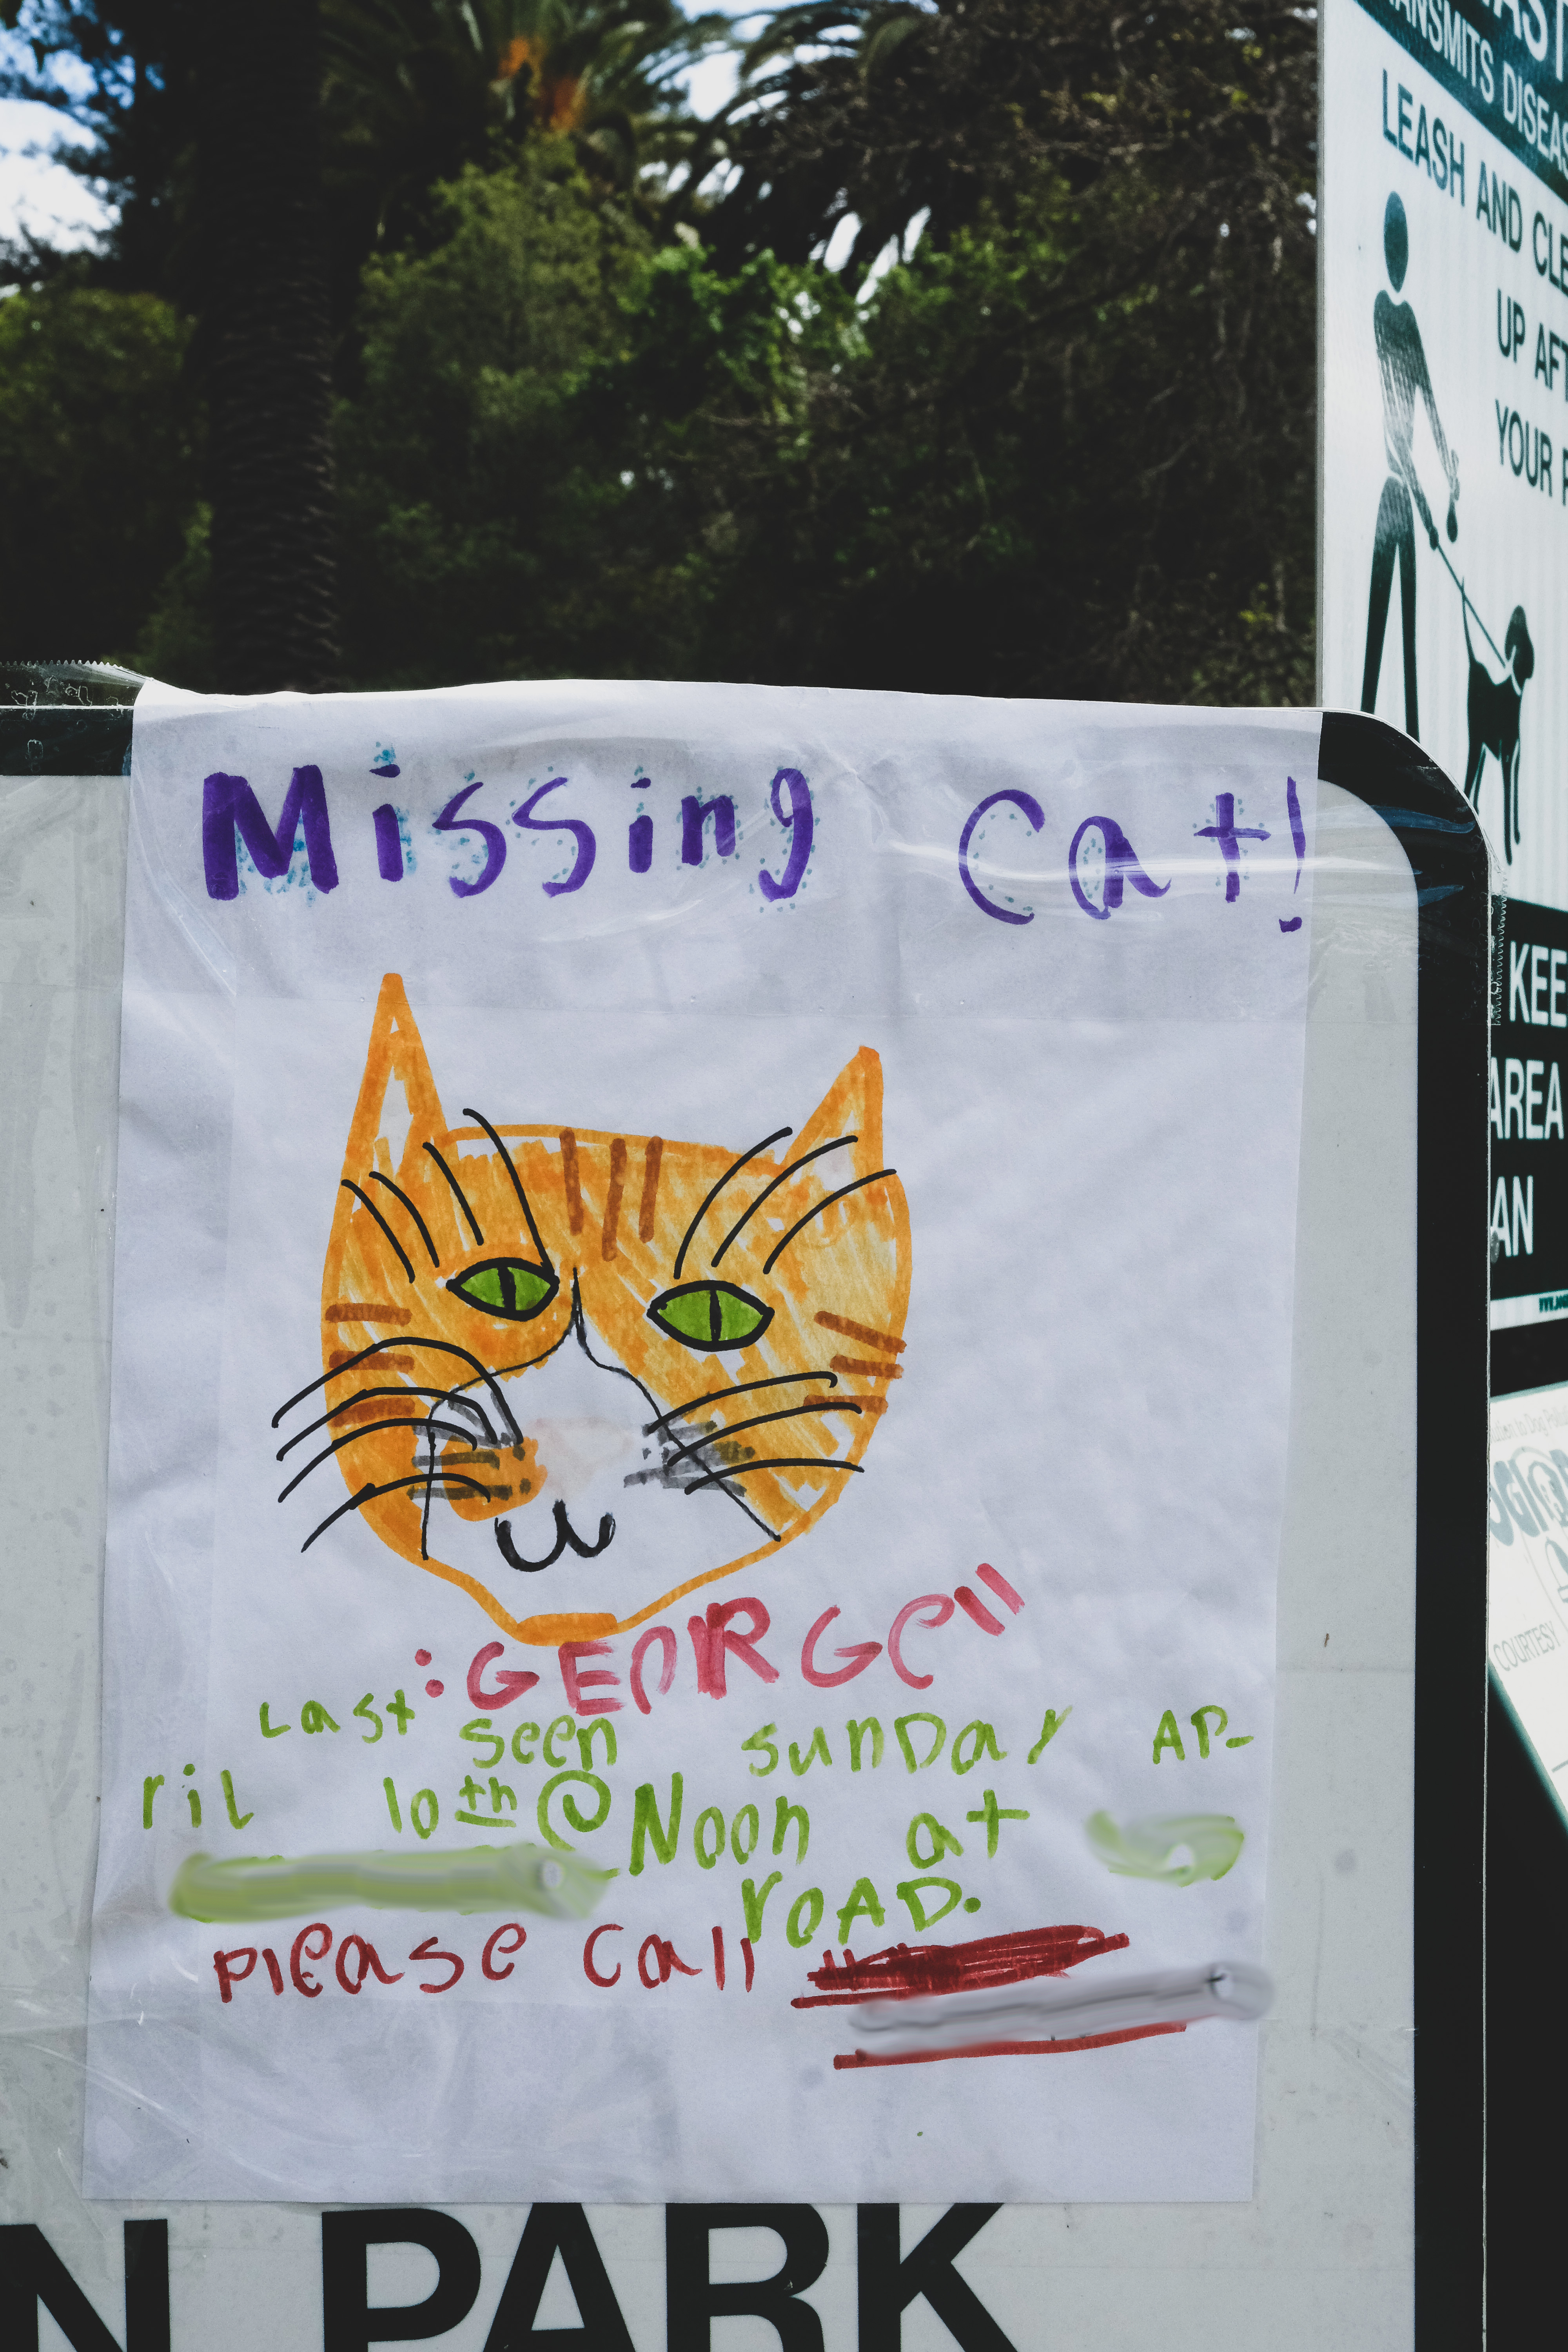 Missing Cat!
:GEORGE"
Last seen sunDay AP-
ril 10th @ Noon at
roAD.
Please call
N PARK
TRANSMITS DISEAS
LEASH AND CLE
UP AFT
YOUR P
KEE
AREA
AN
COURTESY